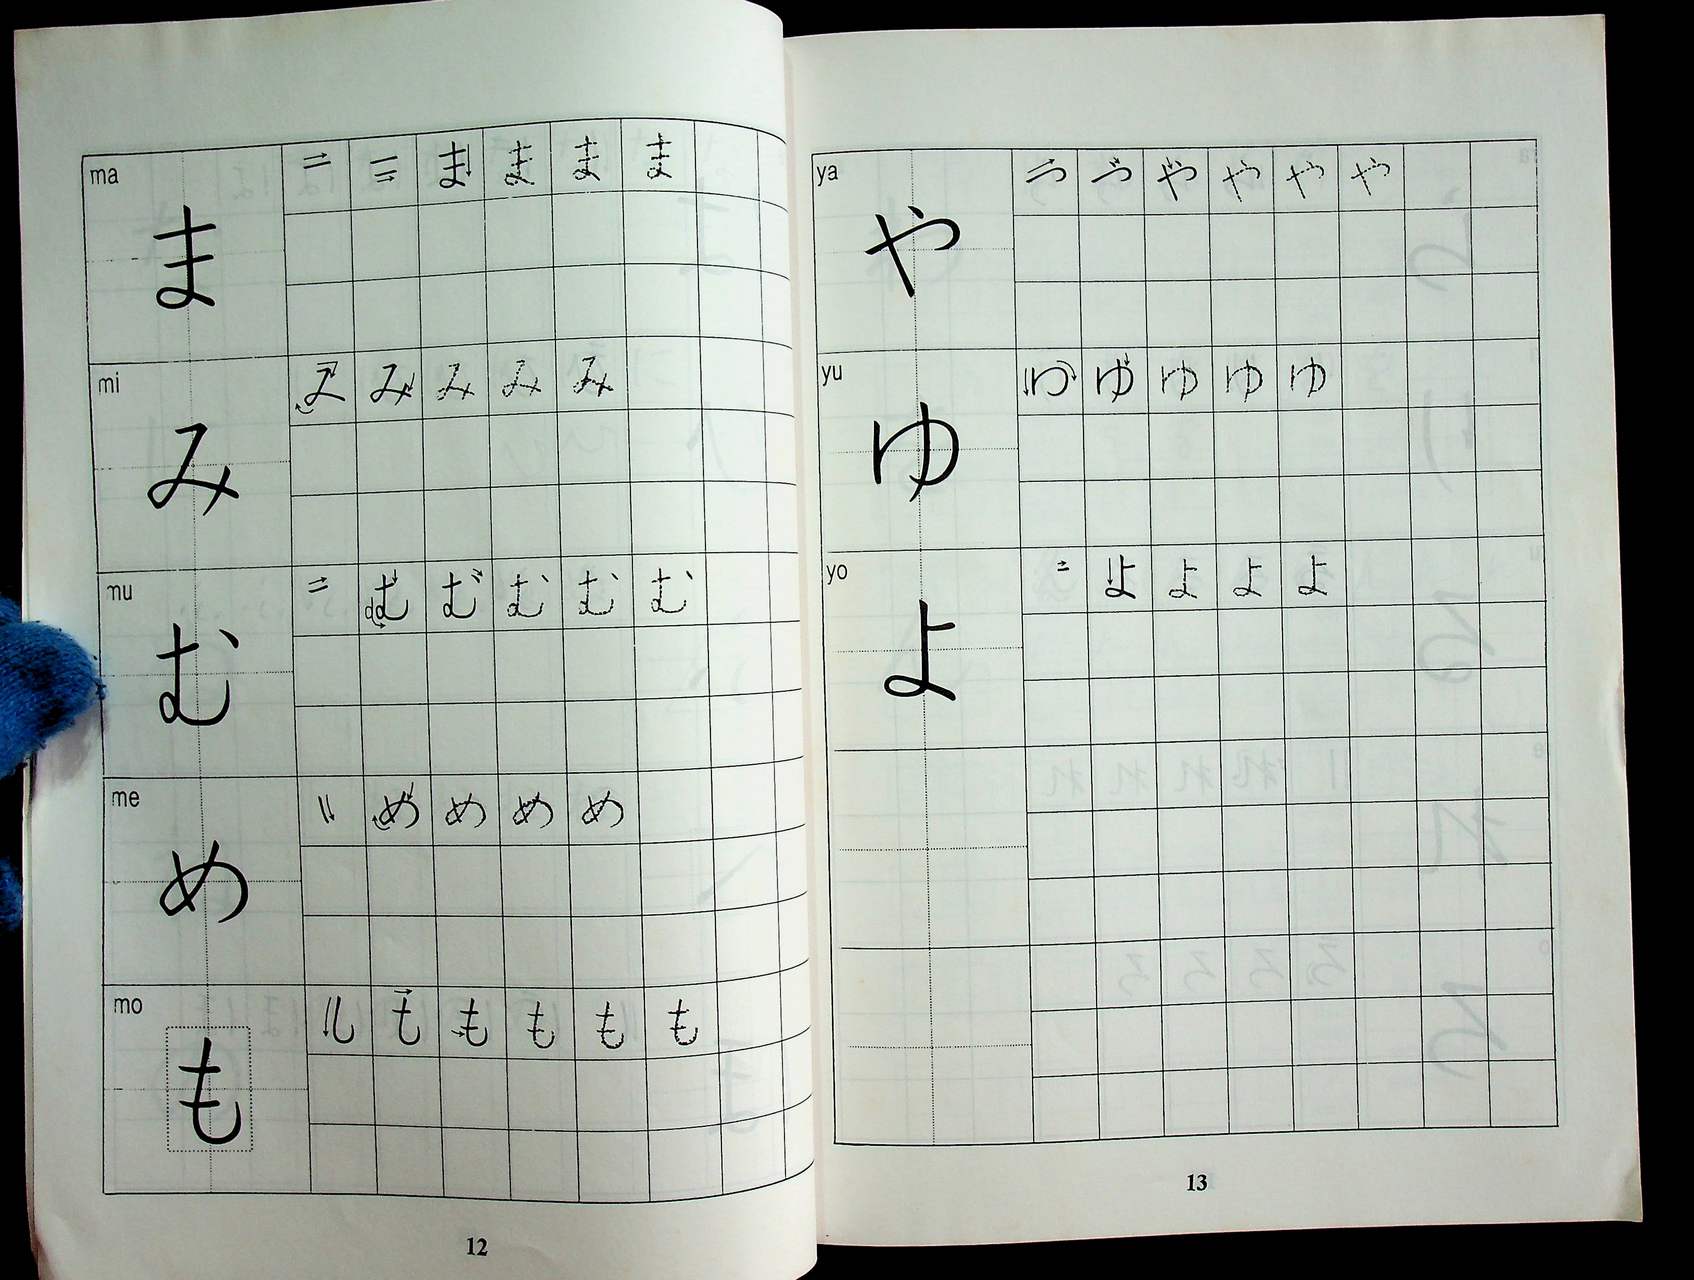 ma
ま ま ま ま ま
mi
み み み み み み
mu
む む む む む む
me
め め め め め
mo
も も も も も も
12
ya
や や や や や
yu
ゆ ゆ ゆ ゆ ゆ
yo
よ よ よ よ よ
13